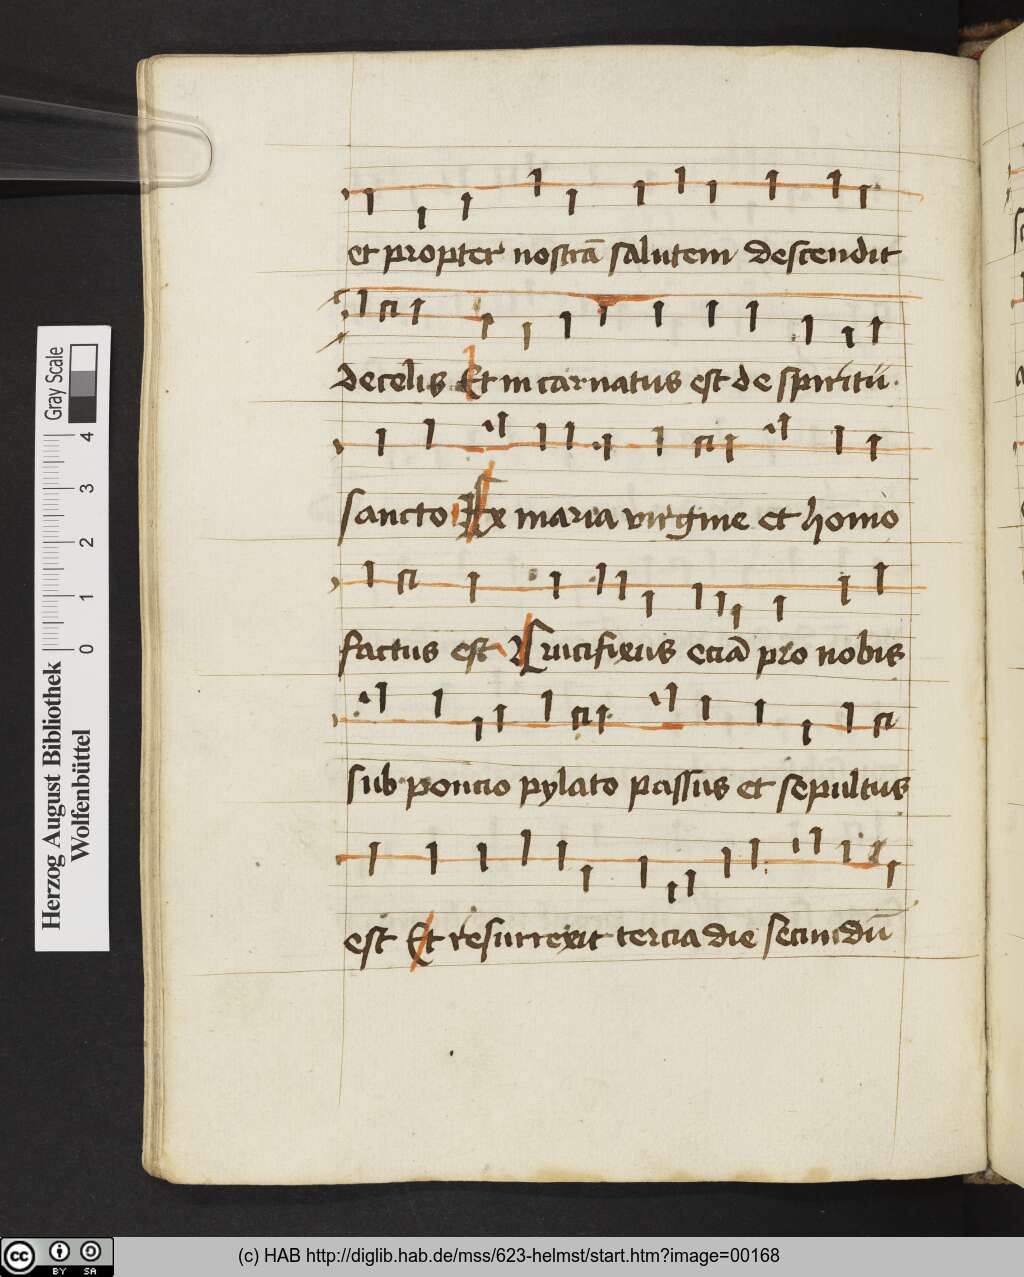 et propter nostrā salutem descendit
de celis Et incarnatus est de spiritū
sancto Ex maria virgine et homo
factus est Crucifixus eciā pro nobis
sub poncio pylato passus et sepultus
est Et resurrexit tercia die secundū
Herzog August Bibliothek
Wolfenbüttel
0 1 2 3 4
Gray Scale
cc BY SA
(c) HAB http://diglib.hab.de/mss/623-helmst/start.htm?image=00168